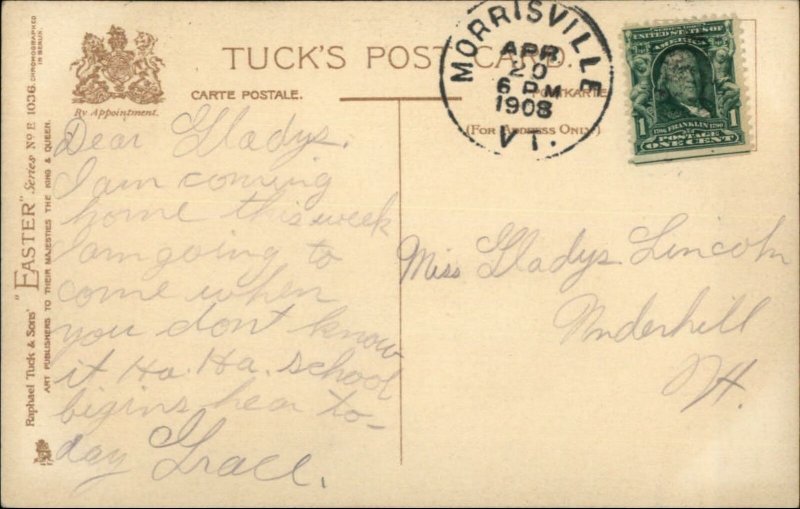 TUCK'S POST CARD.
By Appointment.
CARTE POSTALE.
POSTKARTE
(FOR ADDRESS ONLY)
MORRISVILLE
APR
20
6 PM
1908
VT.
UNITED STATES OF
AMERICA
1 1706 FRANKLIN 1790 1
POSTAGE
ONE CENT
Raphael Tuck & Sons' "EASTER" Series No E 1036.
CHROMOGRAPHED
IN BERLIN.
ART PUBLISHERS TO THEIR MAJESTIES THE KING & QUEEN.
Dear Gladys.
I am coming
home this week
I am going to
come when
you don't know
it Ha. Ha. school
begins hear to-
day Grace.
Miss Gladys Lincoln
Underhill
Vt.